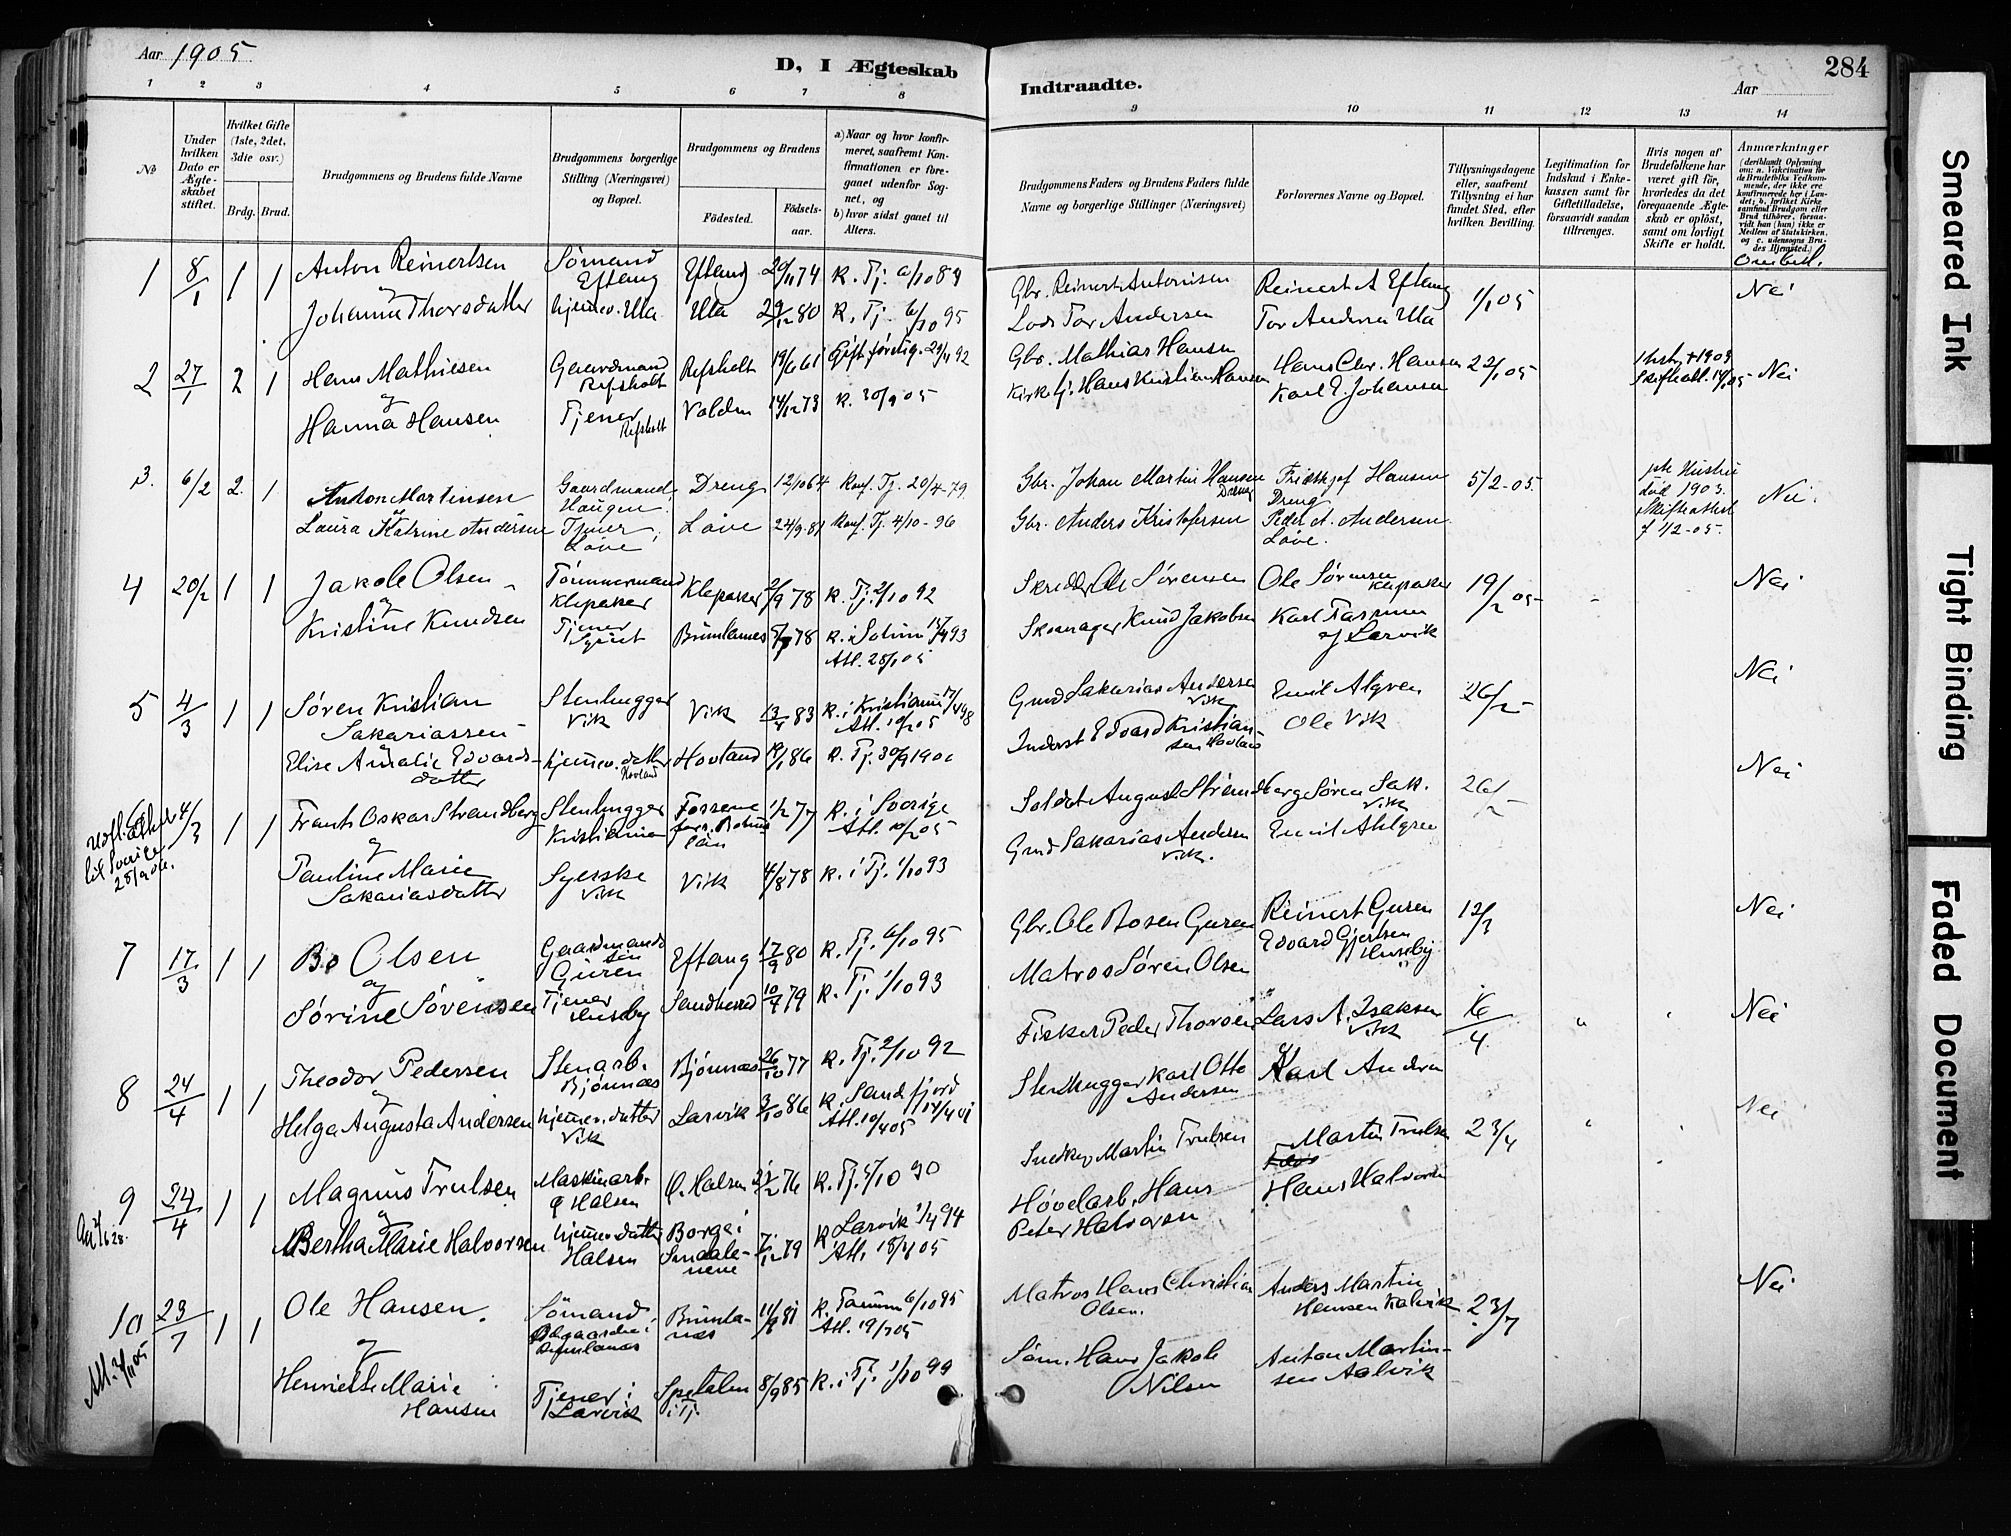 Aar 1905
D, I Ægteskab
Indtraadte.
Aar
284
1 2 3 4 5 6 7 8 9 10 11 12 13 14
No
Under hvilken Dato er Ægteskabet stiftet.
Hvilket Gifte (1ste, 2det, 3die osv.)
Brdg. Brud.
Brudgommens og Brudens fulde Navne
Brudgommens borgerlige Stilling (Næringsvei) og Bopæl.
Brudgommens og Brudens
Fødested. Fødselsaar.
a) Naar og hvor konfirmeret, saafremt Konfirmationen er foregaaet udenfor Sognet, og
b) hvor sidst gaaet til Alters.
Brudgommens Faders og Brudens Faders fulde Navne og borgerlige Stillinger (Næringsvei)
Forlovernes Navne og Bopæl.
Tillysningsdagene eller, saafremt Tillysning ei har fundet Sted, efter hvilken Bevilling.
Legitimation for Indskud i Enkekassen samt for Giftetilladelse, forsaavidt saadan tiltrænges.
Hvis nogen af Brudefolkene har været gift før, hvorledes da det foregaaende Ægteskab er opløst, samt om lovligt Skifte er holdt.
Anmærkninger
1 8/1 1 1 Anton Reinertsen Sømand Eftang Eftang 20/11 74 K. Tj. 6/10 89 Gbr. Reinert Antonisen Reinert A Eftang 1/1 05 Nei
og
Johanne Thorsdatter hjemmev. Ula Ula 29/12 80 K. Tj. 6/10 95 Lods Tor Andersen Tor Andersen Ula
2 27/1 2 1 Hans Mathiesen Gaardmand Refsholt Refsholt 19/6 61 Gift førstg. 29/11 92 Gbr. Mathias Hansen Hans Chr. Hansen 22/1 05 Nei
og
Hanna Hansen Tjener Refsholt Valden 14/12 73 K. 30/9 05 Hans Kristian Hansen Karl E. Johansen
3. 6/2 2. 1 Anton Martinsen Gaardmand, Haugen Dreng 12/10 64 Konf. Tj. 20/4-79 Gbr. Johan Martin Hansen Dreng Fridthjof Hansen Dreng 5/2-05. Hustru død 1903. Nei.
og
Laura Katrine Andersen Tjener, Løve Løve 24/9-81 Konf. Tj. 4/10-96 Gbr. Anders Kristofersen Peder A. Andersen Løve.
4 20/2 1 1 Jakob Olsen Tømmermand Klepaker Klepaker 2/9 78 K. Tj. 2/10 92 Skredder Ole Sørensen Ole Sørensen Klepaker 19/2 05 Nei
og
Kristine Knudsen Tjener Brunlanes 78 K. i Solum 93 Skomager Knud Jakobsen Karl af Larvik
Att. 28/1 05
5 4/3 1 1 Søren Kristian Sakariassen Stenhugger Vik Vik 13/4 83 K. i Kristiania 17/4 98 Att. 10/2 05 Gmd Sakarias Andersen Vik Emil Algren 26/2 Nei
Elise Amalie Edvardsdatter hjemmev. datter Hovland Hovland 19/1 86 K. Tj. 30/9 1900 Inderst Edvard Kristiansen Hovland Ole Vik
6 4/3 1 1 Frants Oskar Strandberg Stenhugger Kristiania 1/2 77 K. i Sverige Att. 10/2 05 Soldat August Strandberg Søren Sak. Vik 26/2 Nei
til Sverige 25/9 06.
og
Pauline Marie Sakariasdatter Syerske Vik Vik 4/8 78 K. i Tj. 1/10 93 Gmd Sakarias Andersen Vik. Emil Ahlgren
7 17/3 1 1 Bo Olsen Gaardmandssøn Guren Eftang 17/9 80 K. Tj. 6/10 95 Gbr. Ole Bosen Guren Reinert Guren 12/3 Nei
og
Sørine Sørensen Tjener Huseby Sandherred 10/4 79 K. Tj. 1/10 93 Matros Søren Olsen Edvard Gjertsen Huseby
8 24/4 1 1 Theodor Pedersen Stenarb. Bjønnæs Bjønnæs 26/10 77 K. Tj. 2/10 92 Fisker Peder Thorsen Lars A. Isaksen Vik 16/4 Nei
og
Helga Augusta Andersen hjemmev. datter Vik Larvik 3/10 86 K. Sandefjord 14/4 01 Att. 10/4 05 Stenhugger Karl Otto Andersen Karl Andersen
9 24/4 1 1 Magnus Trulsen Maskinarb. Ø Halsen Ø. Halsen 76 K. Tj. 5/10 90 Snedker Martin Trulsen Martin Trulsen 23/4 Nei
og
Bertha Marie Halvorsen hjemmev. datter Halsen Borge i Smaalenene 7/12 79 K Larvik 1/4 94 Att. 18/4 05 Høvelarb. Hans Peter Halvorsen Hans Halvorsen
10 23/7 1 1 Ole Hansen Sømand Brunlanæs 11/8 81 K. Tanum 6/10 95 Att. 19/7 05 Matros Hans Christian Olsen. Anders Martin Hansen Kalvik 23/7 Nei
og
Henriette Marie Hansen Tjener i Larvik Spetalen i Tj. 8/9 85 K. i Tj. 1/10 99 Søm. Hans Jakob Nilsen Anton Martinsen Aalvik
Att. 05
Smeared Ink
Tight Binding
Faded Document